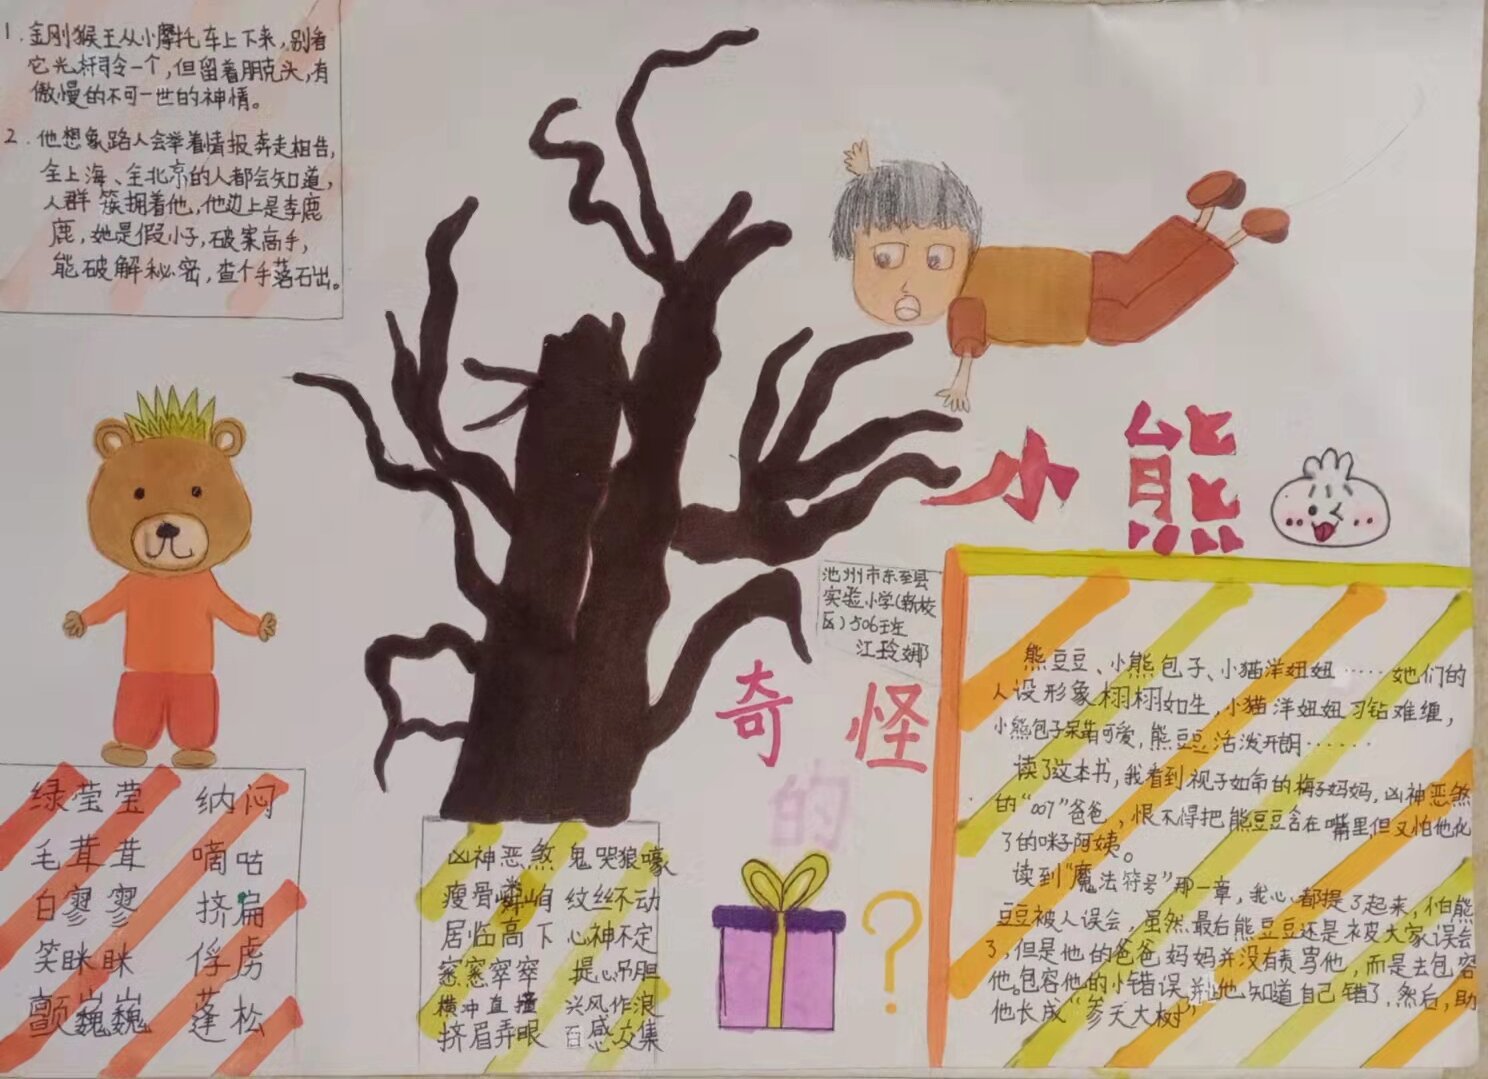 1.金刚猴王从小摩托车上下来,别看
它光杆司令一个,但留着朋克头,有
傲慢的不可一世的神情。
2.他想象路人会举着情报奔走相告,
全上海、全北京的人都会知道,
人群簇拥着他,他边上是李鹿
鹿,她是假小子,破案高手,
能破解秘密,查个手落石出。
小熊
池州市东至县
实验小学(新校
区)506班
江玲娜
奇怪
的
?
绿莹莹 纳闷
毛茸茸 嘀咕
白寥寥 挤扁
笑眯眯 俘虏
颤巍巍 蓬松
凶神恶煞 鬼哭狼嚎
瘦骨嶙峋 纹丝不动
居临高下 心神不定
窸窸窣窣 提心吊胆
横冲直撞 兴风作浪
挤眉弄眼 百感交集
熊豆豆、小熊包子、小猫洋妞妞……她们的
人设形象栩栩如生,小猫洋妞妞刁钻难缠,
小熊包子呆萌可爱,熊豆豆活泼开朗……
读了这本书,我看到视子如命的梅子妈妈,凶神恶煞
的“007”爸爸,恨不得把熊豆豆含在嘴里但又怕他化
了的咪子阿姨。
读到“魔法符号”那一章,我心都提了起来,怕熊
豆豆被人误会,虽然最后熊豆豆还是被大家误会
了,但是他的爸爸妈妈并没有责骂他,而是去包容
他。包容他的小错误,并让他知道自己错了,然后,助
他长成“参天大树”